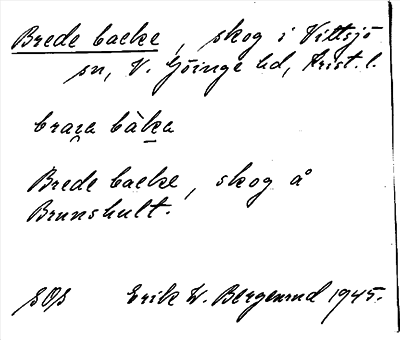 Brede backe, skog i Vittsjö
sn, V. Göinge hd, Krist. l.
Brede backe, skog å
Brunshult.
SOS Erik W. Bergenud 1945.